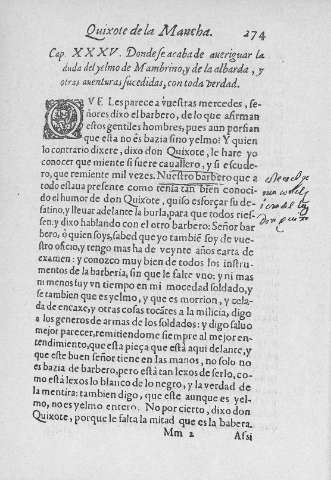 Quixote de la Mancha. 274
Cap. XXXV. Donde se acaba de aueriguar la
duda del yelmo de Mambrino, y de la albarda, y
otras auenturas sucedidas, con toda verdad.
QVE Les parece a vuestras mercedes, se-
ñores dixo el barbero, de lo que afirman
estos gentiles hombres, pues aun porfian
que esta no es bazia sino yelmo: Y quien
lo contrario dixere, dixo don Quixote, le hare yo
conocer que miente si fuere cauallero, y si escude-
ro, que remiente mil vezes. Nuestro barbero que a
todo estaua presente como tenia tan bien conoci-
do el humor de don Quixote, quiso esforçar su de-
satino, y lleuar adelante la burla, para que todos ries-
sen: y dixo hablando con el otro barbero: Señor bar
bero, o quien soys, sabed que yo tambiē soy de vue-
stro oficio, y tengo mas ha de veynte años carta de
examen: y conozco muy bien de todos los instru-
mentos de la barberia, sin que le falte vno: y ni mas
ni menos fuy vn tiempo en mi mocedad soldado, y
se tambien que es yelmo, y que es morrion, y cela-
da de encaxe, y otras cosas tocātes a la milicia, digo
a los generos de armas de los soldados: y digo saluo
mejor parecer, remitiendome siempre al mejor en-
tendimiento, que esta pieça que està aqui delante, y
que este buen señor tiene en las manos, no solo no
es bazia de barbero, pero està tan lexos de serlo, co-
mo està lexos lo blanco de lo negro, y la verdad de
la mentira: tambien digo, que este aunque es yel-
mo, no es yelmo entero. No por cierto, dixo don
Quixote, porque le falta la mitad que es la babera.
Mm 2 Assi
don quixo